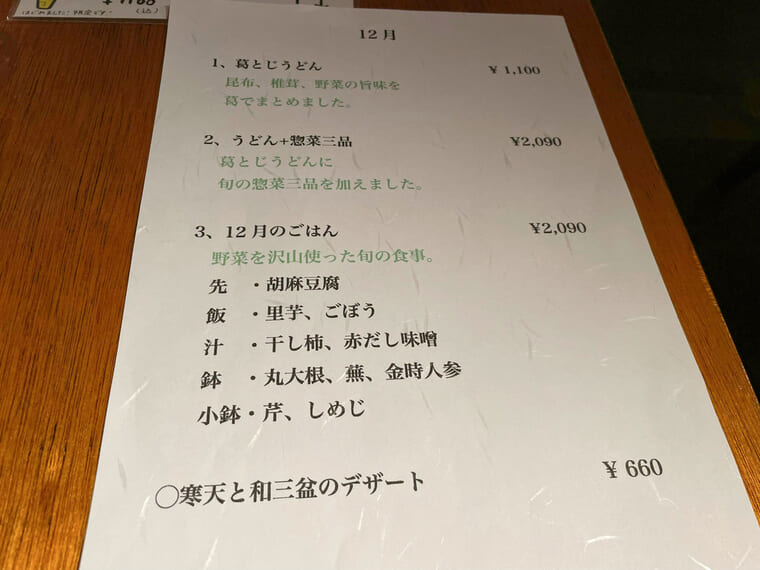 はじめました! 別途です。
(込)
12月
1、葛とじうどん ¥ 1,100
昆布、椎茸、野菜の旨味を
葛でまとめました。
2、うどん+惣菜三品 ¥2,090
葛とじうどんに
旬の惣菜三品を加えました。
3、12月のごはん ¥2,090
野菜を沢山使った旬の食事。
先 ・胡麻豆腐
飯 ・里芋、ごぼう
汁 ・干し柿、赤だし味噌
鉢 ・丸大根、蕪、金時人参
小鉢・芹、しめじ
◯寒天と和三盆のデザート ¥ 660